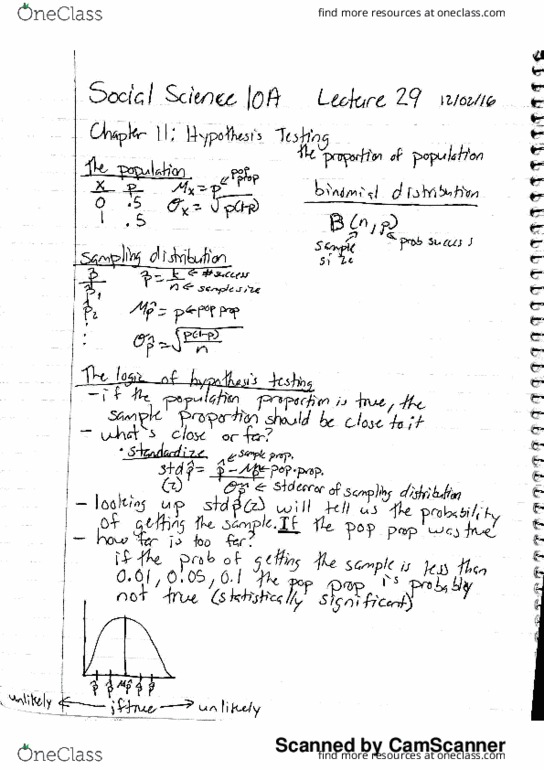 OneClass
find more resources at oneclass.com
Social Science 10A Lecture 29 12/02/16
Chapter 11: Hypothesis Testing
the proportion of population
The population
x p
0 .5
1 .5
μx = p ← pop prop
σx = √p(1-p)
binomial distribution
B(n, p)
sample size
prob success
Sampling distribution
p̂
p̂1
p̂2
⋮
p̂ = k/n ← # success
← sample size
μp̂ = p ← pop prop
σp̂ = √p(1-p)/n
The logic of hypothesis testing
- if the population proportion is true, the
sample proportion should be close to it
- what's close or far?
• standardize
std p̂ = p̂ - μp̂ ← pop. prop.
(z) σp̂ ← std error of sampling distribution
sample prop.
- looking up std p̂ (z) will tell us the probability
of getting the sample. If the pop prop was true
- how far is too far?
if the prob of getting the sample is less than
0.01, 0.05, 0.1 the pop prop is probably
not true (statistically significant)
p̂ p̂ μp̂ p̂ p̂
unlikely ← if true → unlikely
Scanned by CamScanner
OneClass
find more resources at oneclass.com